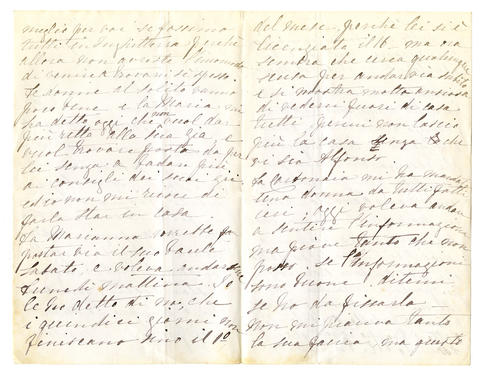 meglio per voi se fossimo
tutti in Inghilterra perchè
allora non avreste l'incomodo
di venire a trovarci spesso.
Le donne al solito vanno
poco bene e la Maria mi
ha detto oggi che non vuol dar
più retta alla sua zia e
vuol trovare posto da per
lei senza badar più
ai consigli dei suoi zii
ed io non mi riesce di
farla star in casa
La Marianna vorrebbe
portar via il suo baule
Sabato, e voleva andar
Lunedì mattina. Io
le ho detto di no, che
i quindici giorni non
finiscano sino il 1º
del mese perchè lei si è
licenziata il 16. ma ora
sembra che cerca qualunque
scusa per andar via subito
e si mostra molto ansiosa
di vederci fuori di casa
tutti per cui non lascio
più la casa senza che
vi sia Alfonso
La Carbonaia mi ha mandato
una donna da tutti fatti
ieri, oggi voleva andare
a sentire l'informazione
ma piove tanto che non
posso se l'informazioni
sono buone, ditemi
se ho da fissarla
Non mi piaceva tanto
la sua faccia, ma questo